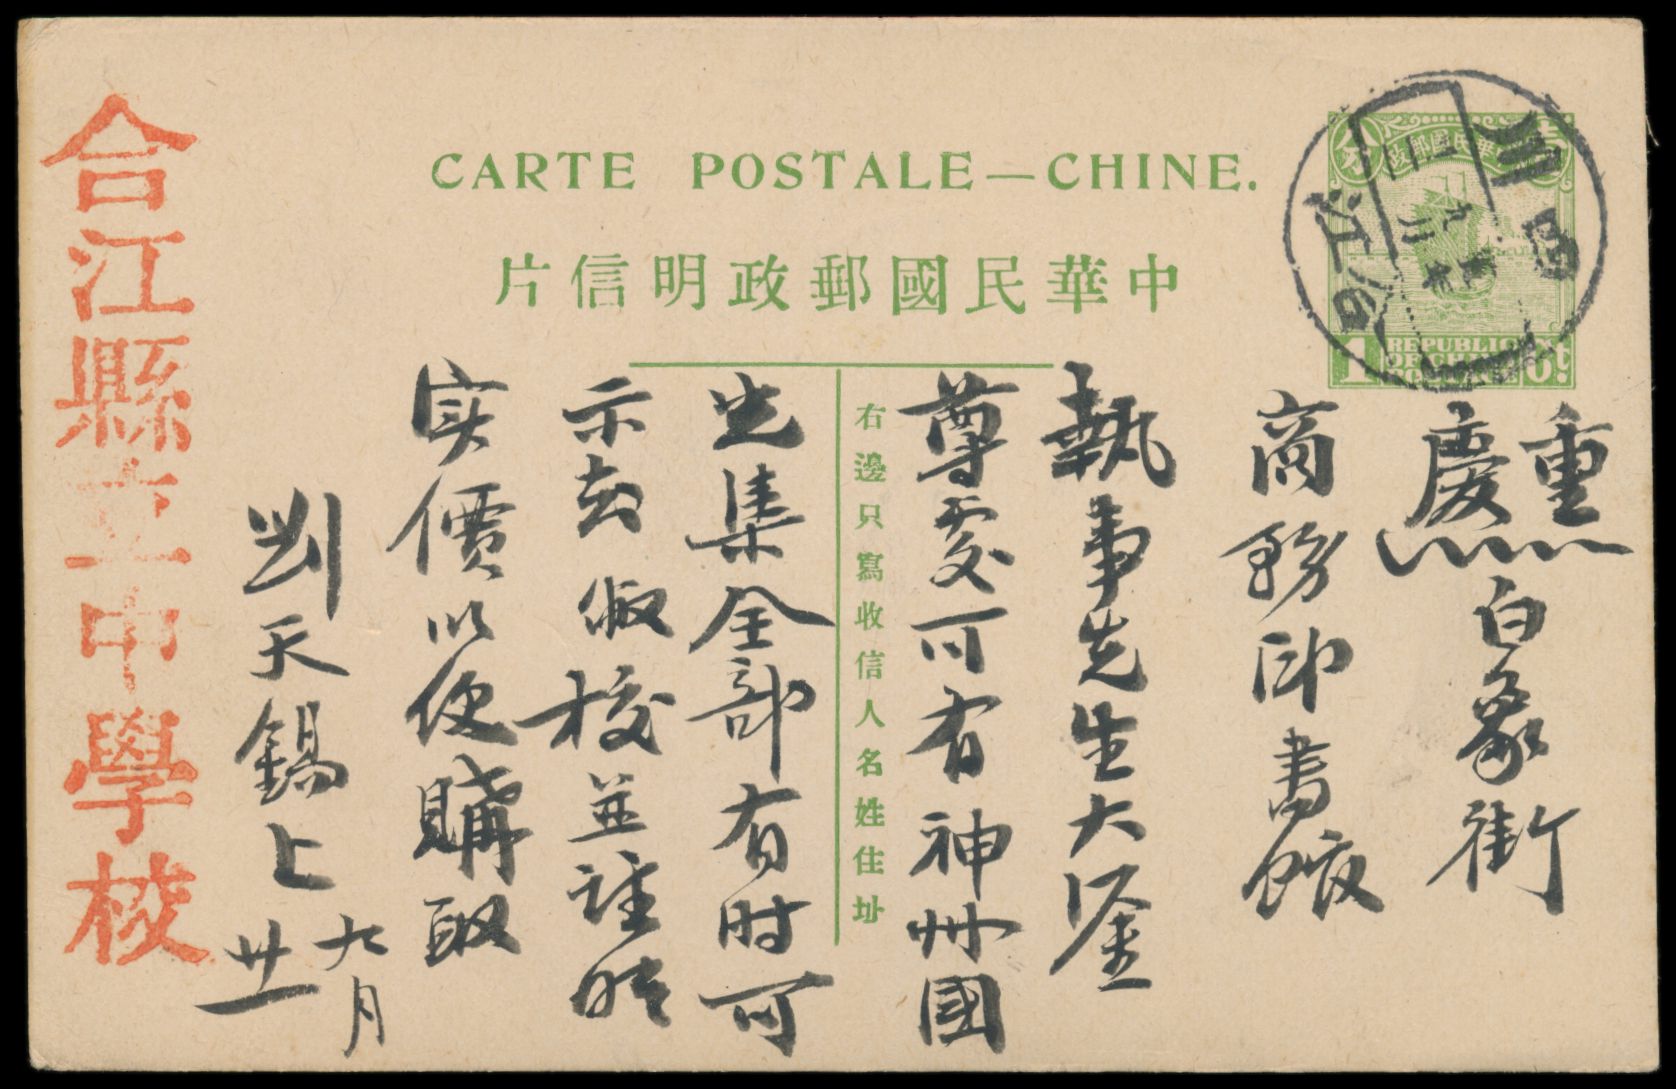 CARTE POSTALE—CHINE.
中華民國郵政明信片
中華民國郵政
REPUBLIC
OF CHINA
1 ct.
四川
合江
右邊只寫收信人名姓住址
重慶白象街
商務印書館
執事先生大鑒
尊處可有神州國
光集全部有时可
示知敝校並註明
実價以便購取
劉天錫上
九月
廿一
合江縣立中學校